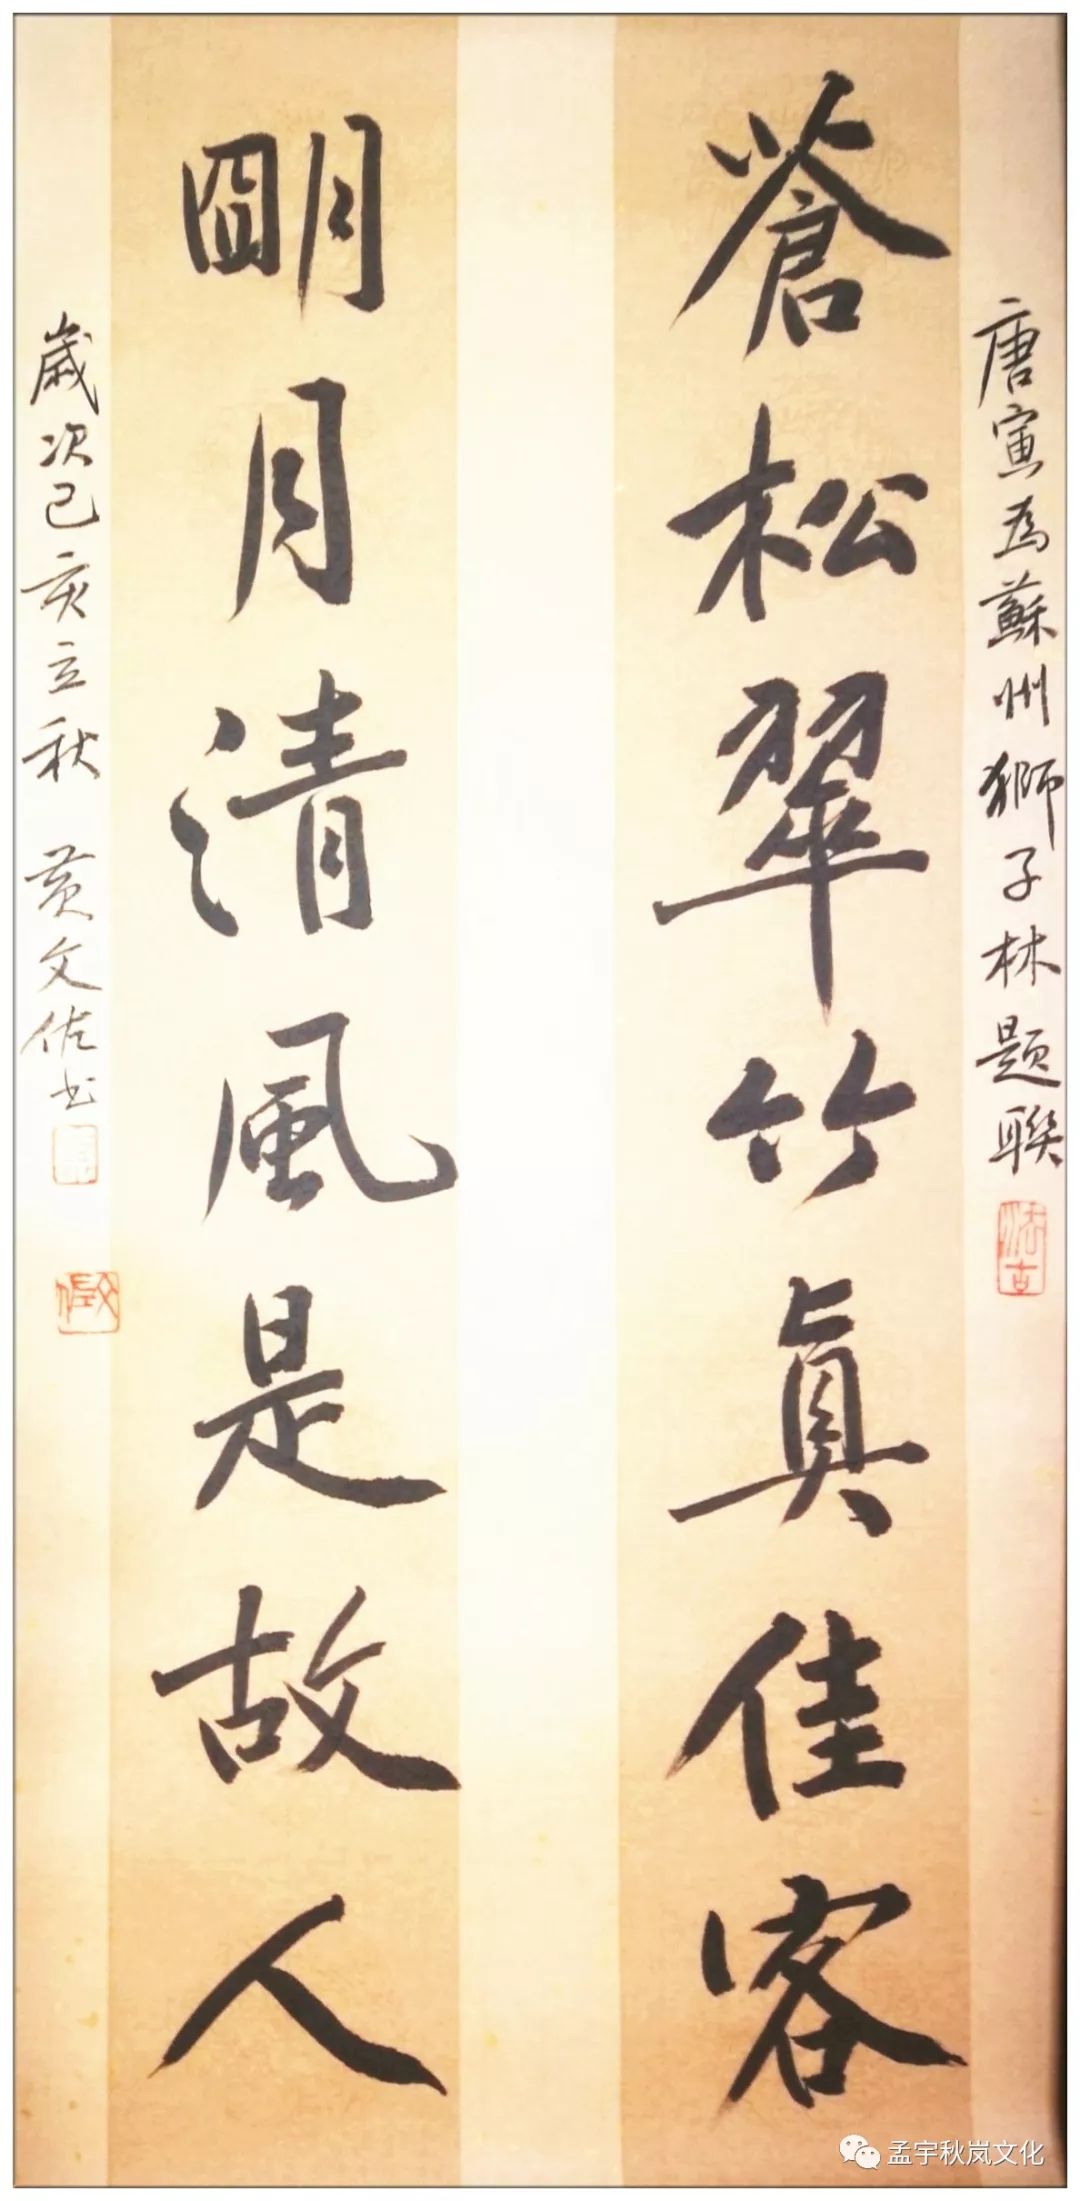 唐寅为蘇州獅子林题聯
蒼松翠竹真佳客
明月清風是故人
歲次己亥立秋 黄文佐书
法古
文佐
孟宇秋岚文化